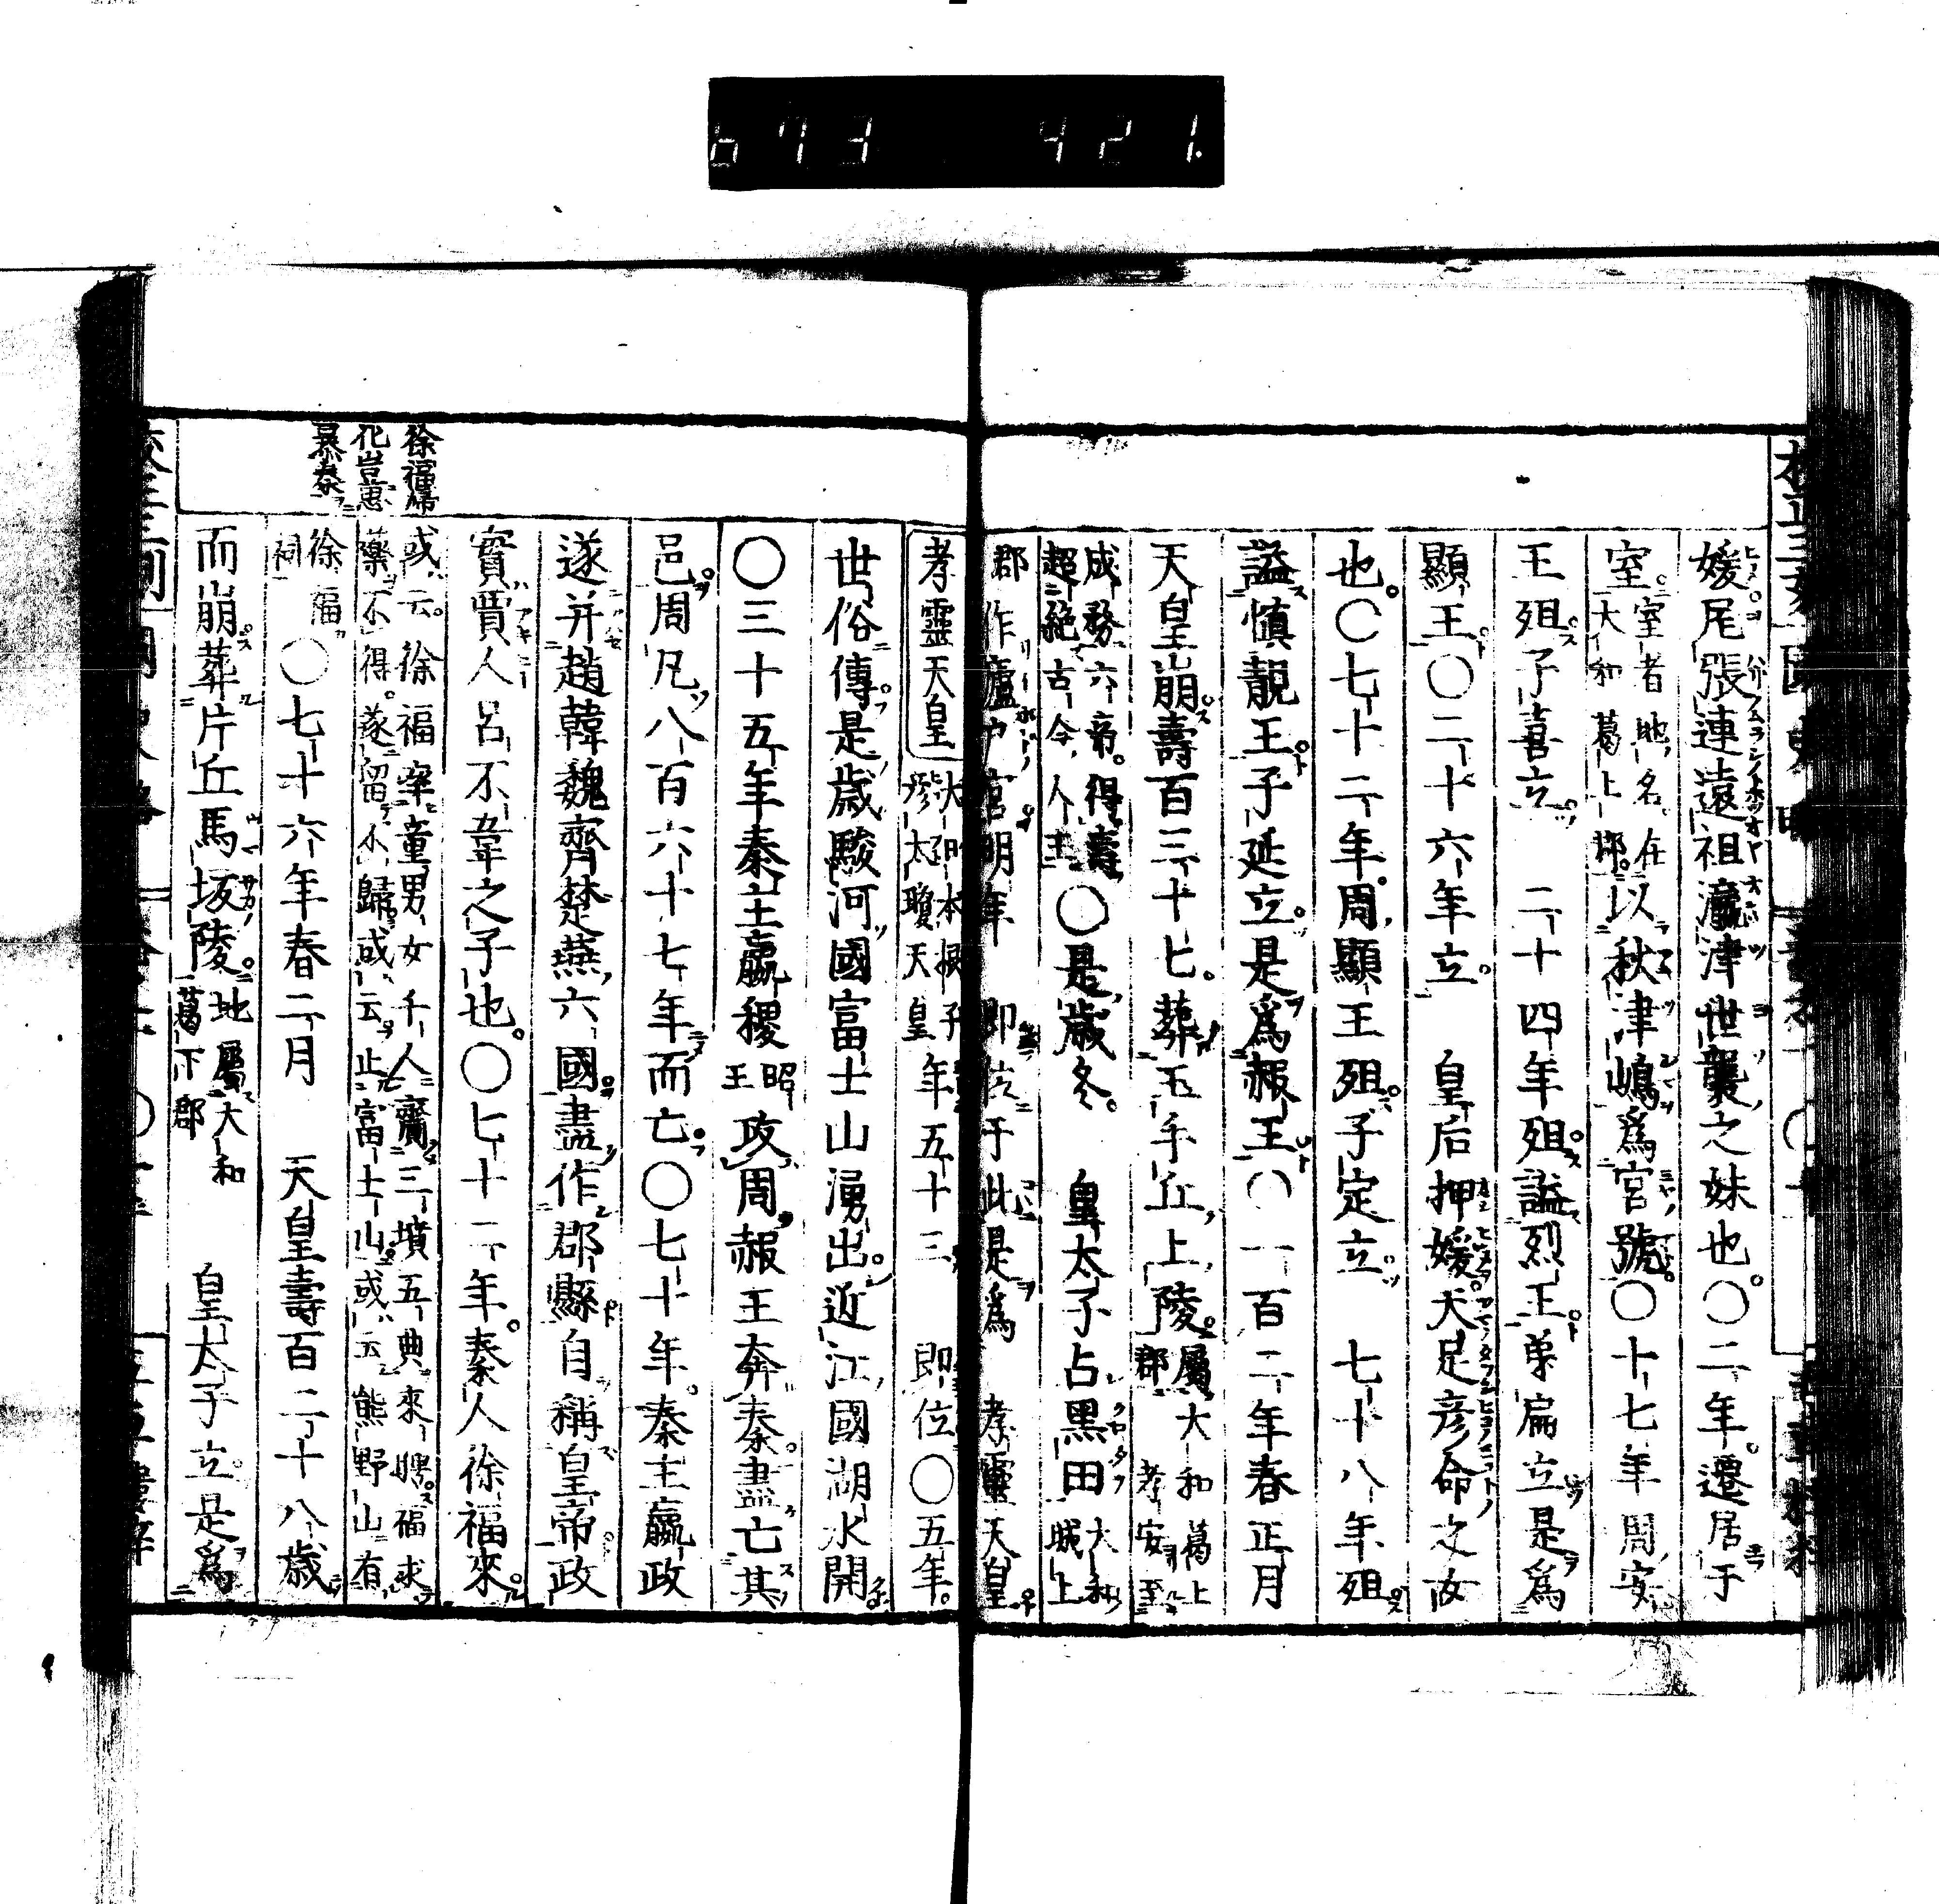 673 421.
媛尾張連遠祖瀛津世襲之妹也。〇二年。遷居于
室。室者地名。在大和葛上郡。以秋津嶋爲宮號。〇十七年周安
王殂子喜立 二十四年殂謚烈王弟扁立是爲
顯王〇二十六年立 皇后押媛天足彦命之女
也。〇七十二年。周顯王殂子定立 七十八年殂
謚慎靚王子延立是爲赧王〇一百二年春正月
天皇崩壽百三十七。葬玉手丘上陵。屬大和葛上郡 孝安至
成務六帝。得壽超絶古今人主〇是歳冬。 皇太子占黒田大和城上
郡作廬戸宮明年 即位于此是爲 孝靈天皇
孝靈天皇 大日本根子彦太瓊天皇 年五十三 即位〇五年。
世俗傳是歳駿河國富士山湧出。近江國湖水開
〇三十五年秦主嬴稷昭王攻周赧王奔秦盡亡其
邑。周凡八百六十七年而亡。〇七十年。秦主嬴政
遂并趙韓魏齊楚燕六國盡作郡縣自稱皇帝政
實賈人呂不韋之子也。〇七十二年。秦人徐福來。
徐福歸
化豈蕙
暴秦
或云。徐福率童男女千人齎三墳五典來聘福求
藥不得。遂留不歸或云止富士山或云熊野山有
徐福祠 〇七十六年春二月 天皇壽百二十八歳
而崩葬片丘馬坂陵。地屬大和葛下郡 皇太子立是爲